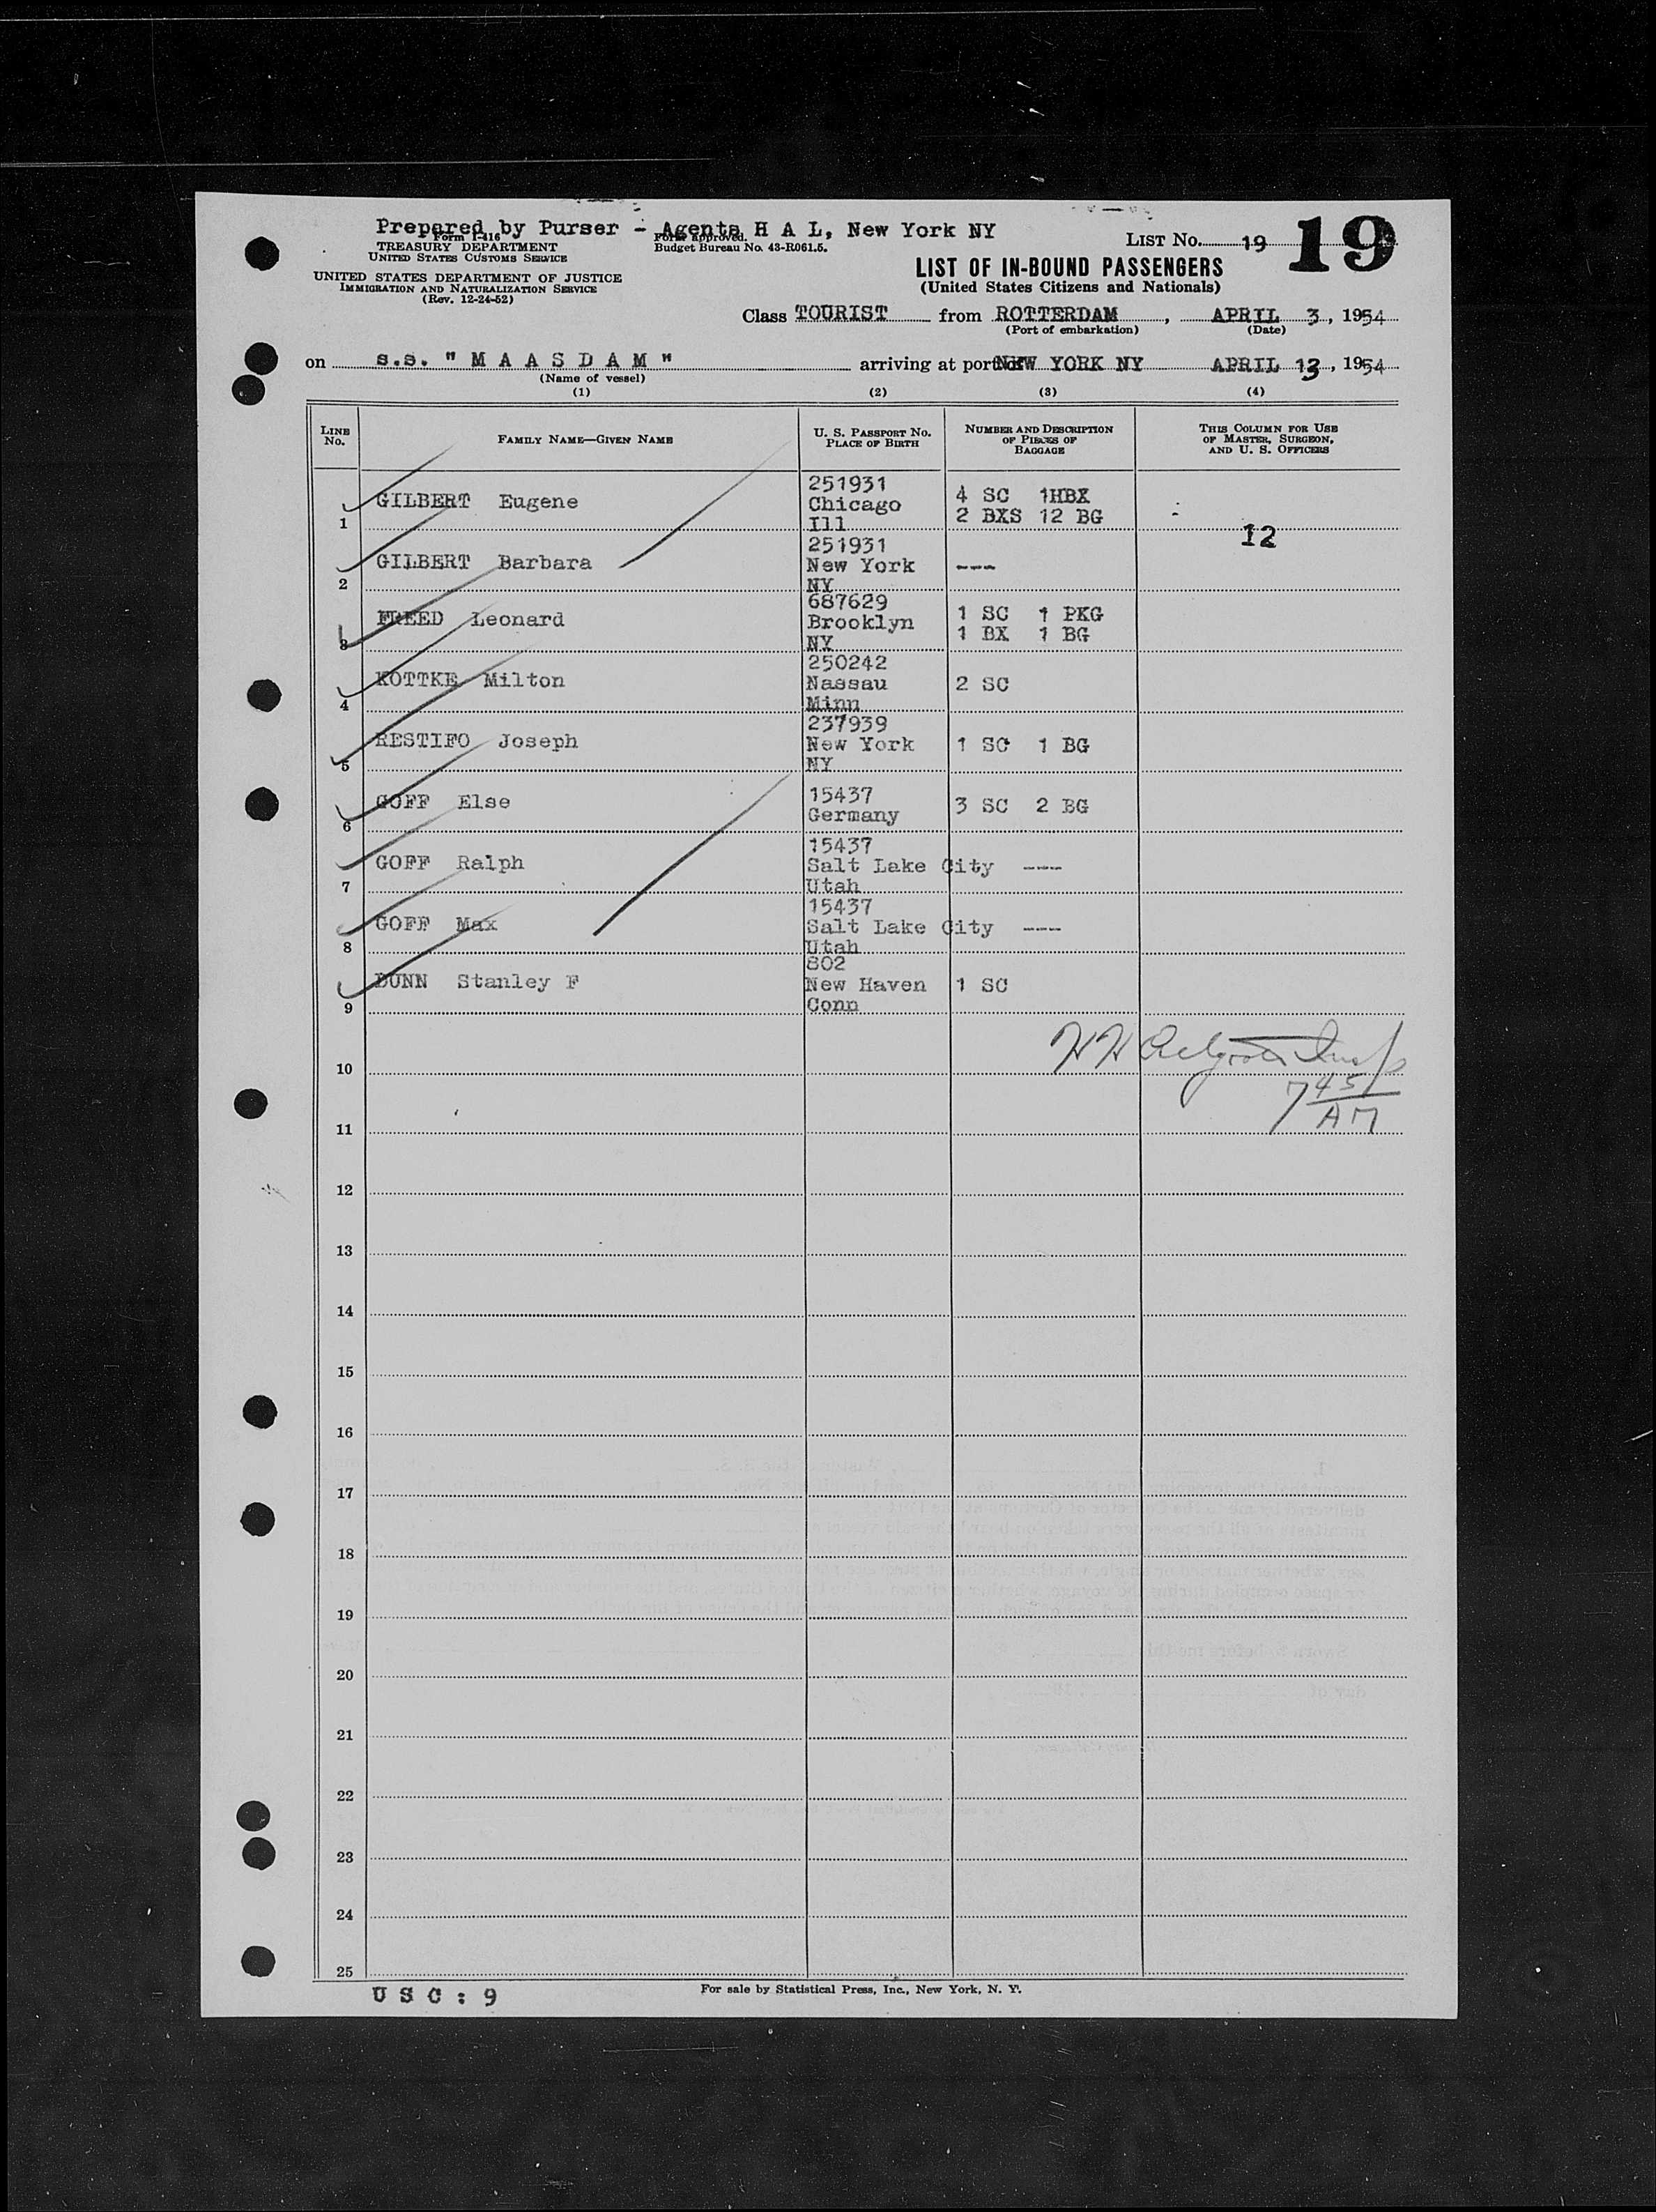 Prepared by Purser - Agents H A L, New York NY
Form I-416
TREASURY DEPARTMENT
UNITED STATES CUSTOMS SERVICE
Form approved.
Budget Bureau No. 43-R061.5.
LIST No. 19 19
UNITED STATES DEPARTMENT OF JUSTICE
IMMIGRATION AND NATURALIZATION SERVICE
(Rev. 12-24-52)
LIST OF IN-BOUND PASSENGERS
(United States Citizens and Nationals)
Class TOURIST from ROTTERDAM, APRIL 3, 1954
(Port of embarkation) (Date)
on s.s. " M A A S D A M " arriving at port of NEW YORK NY APRIL 13, 1954
(Name of vessel)
(1) (2) (3) (4)
LINE No. FAMILY NAME—GIVEN NAME U. S. PASSPORT No. PLACE OF BIRTH NUMBER AND DESCRIPTION OF PIECES OF BAGGAGE THIS COLUMN FOR USE OF MASTER, SURGEON, AND U. S. OFFICERS
1 GILBERT Eugene 251931 Chicago Ill 4 SC 1HBX 2 BXS 12 BG
12
2 GILBERT Barbara 251931 New York NY ---
3 FREED Leonard 687629 Brooklyn NY 1 SC 1 PKG 1 BX 1 BG
4 KOTTKE Milton 250242 Nassau Minn 2 SC
5 RESTIFO Joseph 237939 New York NY 1 SC 1 BG
6 GOFF Else 15437 Germany 3 SC 2 BG
7 GOFF Ralph 15437 Salt Lake City Utah ---
8 GOFF Max 15437 Salt Lake City Utah ---
9 DUNN Stanley F 802 New Haven Conn 1 SC
10
7 45 AM
11
12
13
14
15
16
17
18
19
20
21
22
23
24
25
U S C : 9
For sale by Statistical Press, Inc., New York, N. Y.